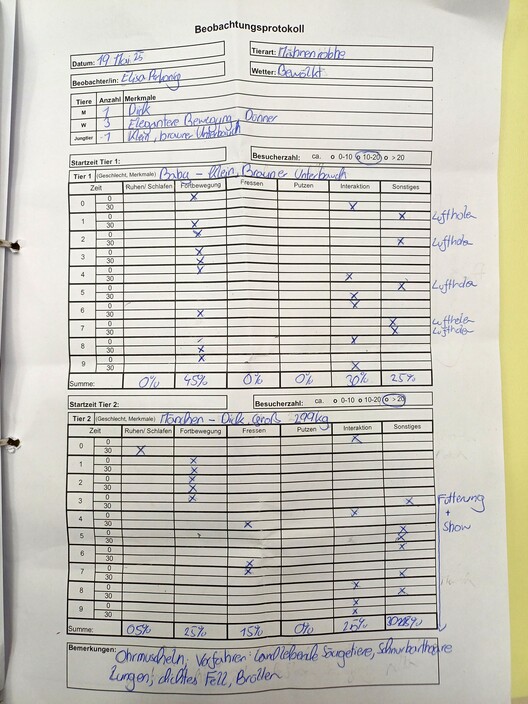 Beobachtungsprotokoll
Datum: 19 Mai 25
Tierart: Mähnenrobbe
Beobachter/in: Elisa
Wetter: Bewölkt
Tiere Anzahl Merkmale
M 1 Dick
W 3 Elegantere Bewegung, Dünner
Jungtier 1 Klein, braune Unterbauch
Startzeit Tier 1:
Besucherzahl: ca. o 0-10 o 10-20 o > 20
Tier 1 (Geschlecht, Merkmale) Baby - Klein, Braune Unterbauch
Zeit Ruhen/ Schlafen Fortbewegung Fressen Putzen Interaktion Sonstiges
0 0 X
30 X
1 0 X Luftholen
30 X
2 0 X
30 X Luftholen
3 0 X
30 X
4 0 X
30 X
5 0 X Luftholen
30 X
6 0 X
30 X
7 0 X Luftholen
30 X Luftholen
8 0 X
30 X
9 0 X
30 X
Summe: 0% 45% 0% 0% 30% 25%
Startzeit Tier 2:
Besucherzahl: ca. o 0-10 o 10-20 o > 20
Tier 2 (Geschlecht, Merkmale) Mänchen - Dick, Groß 299kg
Zeit Ruhen/ Schlafen Fortbewegung Fressen Putzen Interaktion Sonstiges
0 0 X
30 X
1 0 X
30 X
2 0 X
30 X
3 0 X
30 X Fütterung
4 0 X +
30 X Show
5 0 X
30 X
6 0 X
30
7 0 X
30 X X
8 0 X
30 X
9 0 X
30 X
Summe: 05% 25% 15% 0% 25% 30%
Bemerkungen: Ohrmuscheln, Vorfahren: Landlebende Säugetiere, Schnurbarthaare
Lungen, dichtes Fell, Brüllen